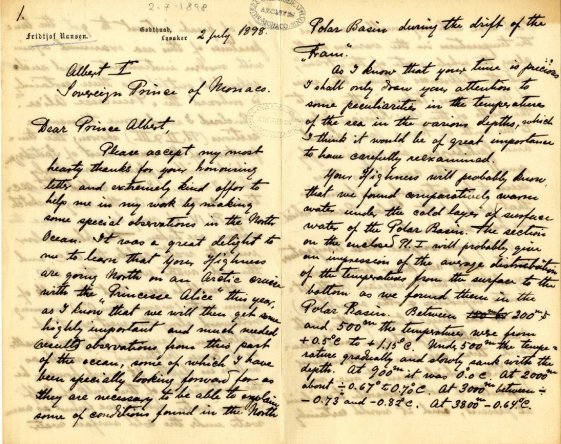 1.
2-7-1898
Fridtjof Nansen.
Godthaab,
Lysaker
2 July 1898.
Albert I
Sovereign Prince of Monaco.
Dear Prince Albert,
Please accept my most
hearty thanks for your honouring
letter and extremely kind offer to
help me in my work by making
some special observations in the North
Ocean. It was a great delight to
me to learn that your Highness
are going North on an Arctic cruise
with the "Princesse Alice" this year,
as I know that we will then get some
highly important and much needed
results observations from this part
of the ocean, some of which I have
been specially looking forward for as
they are necessary to be able to explain
some of conditions found in the North
Polar Basin during the drift of the
„Fram".
As I know that your time is precious
I shall only draw your attention to
some peculiarities in the temperature
of the sea in the various depths, which
I think it would be of great importance
to have carefully reexamined.
Your Highness will probably know
that we found comparatively warm
water under the cold layer of surface
water of the Polar Basin. The section
on the enclosed Pl. I will probably give
an impression of the average distribution
of the temperatures from the surface to the
bottom as we found them in the
Polar Basin. Between 200m
and 500m the temperature were from
+0.5°C to +1.15°C. Under 500m the tempe-
rature gradually and slowly sank with the
depth. At 900m it was 0°.0 C. At 2000m
about ÷0.67° to 0.70°C. At 3000m between ÷
-0.73 and -0.82°C. At 3800m -0.64°C.